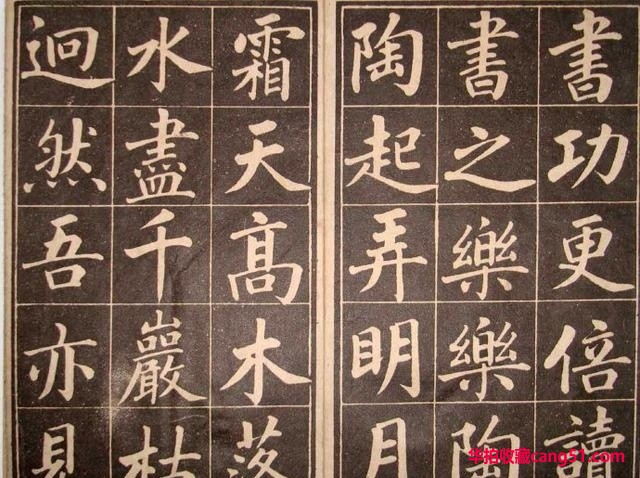 書功更倍讀
書之樂樂陶
陶起弄明月
霜天高木落
水盡千巖枯
迥然吾亦見
华拍收藏cang51.com